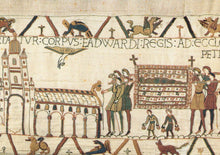 TATVR: CORPVS: EADWARDI: REGIS: AD: ECCLE
PETRI